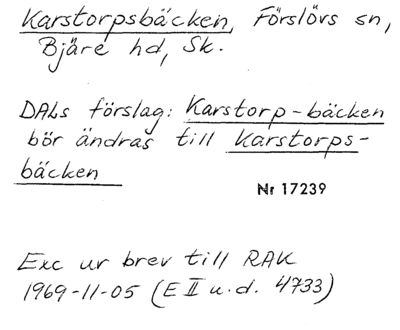 Karstorpsbäcken, Förslövs sn,
Bjäre hd, Sk.
DALs förslag: Karstorp-bäcken
bör ändras till Karstorps-
bäcken
Nr 17239
Exc ur brev till RAK
1969-11-05 (E II u.d. 4733)